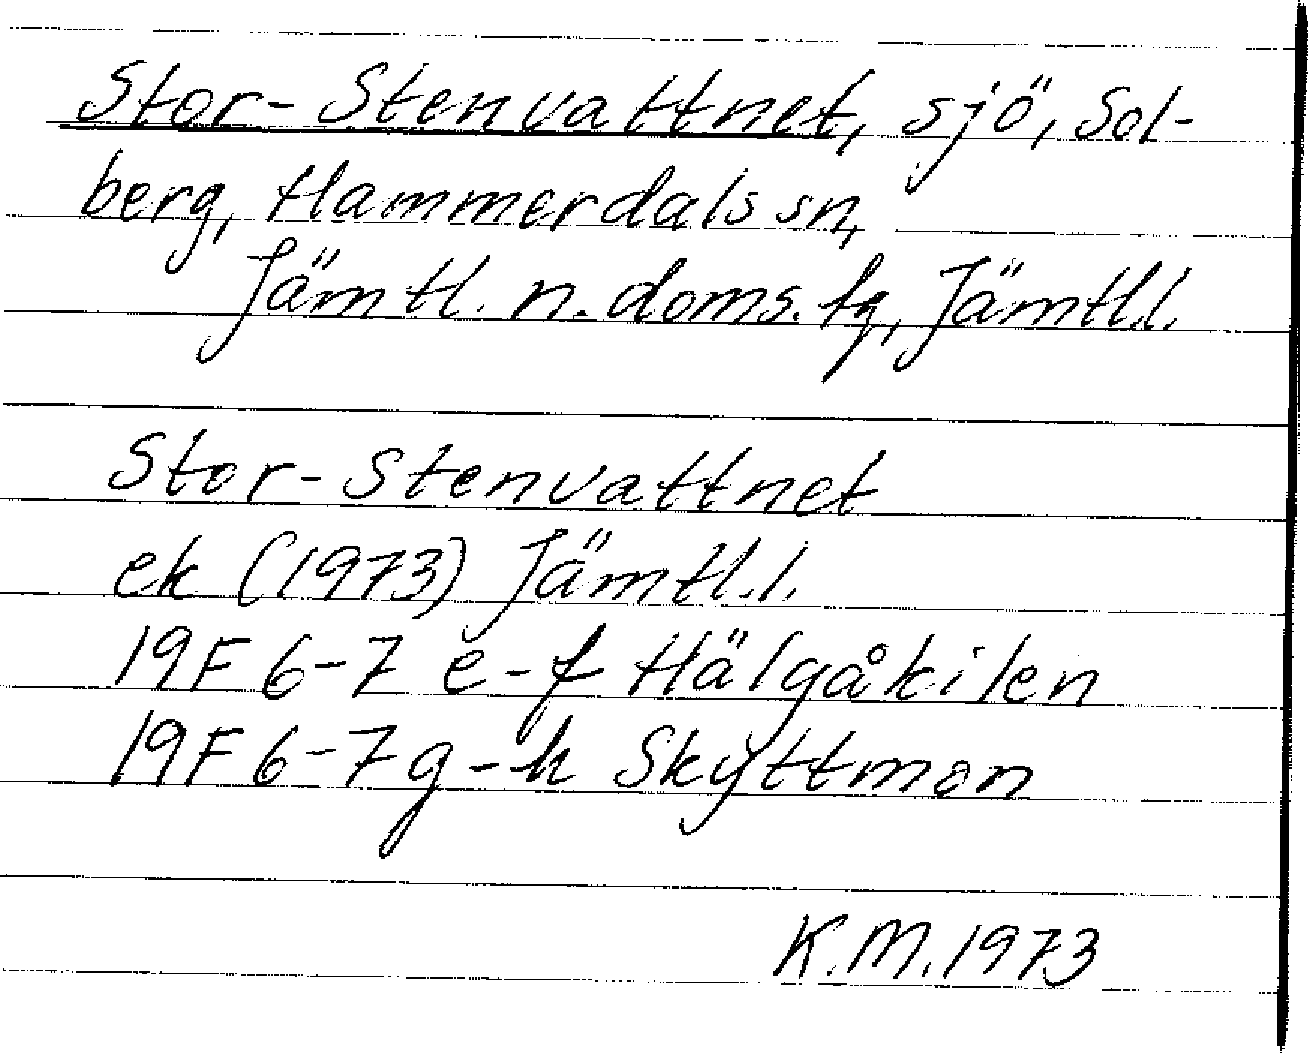 Stor-Stenvattnet, sjö, Sol-
berg, Hammerdals sn,
Jämtl. n. doms. tg, Jämtl.l.
Stor-Stenvattnet
ek (1973) Jämtl.l.
19F 6-7 e-f Hälgåkilen
19F 6-7 g-h Skyttmon
K.M. 1973